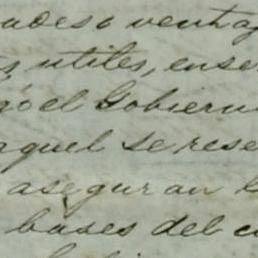 udes o ventaj
s utiles, ense
go el Gobiern
aquel se rese
aseguran l
bases del c